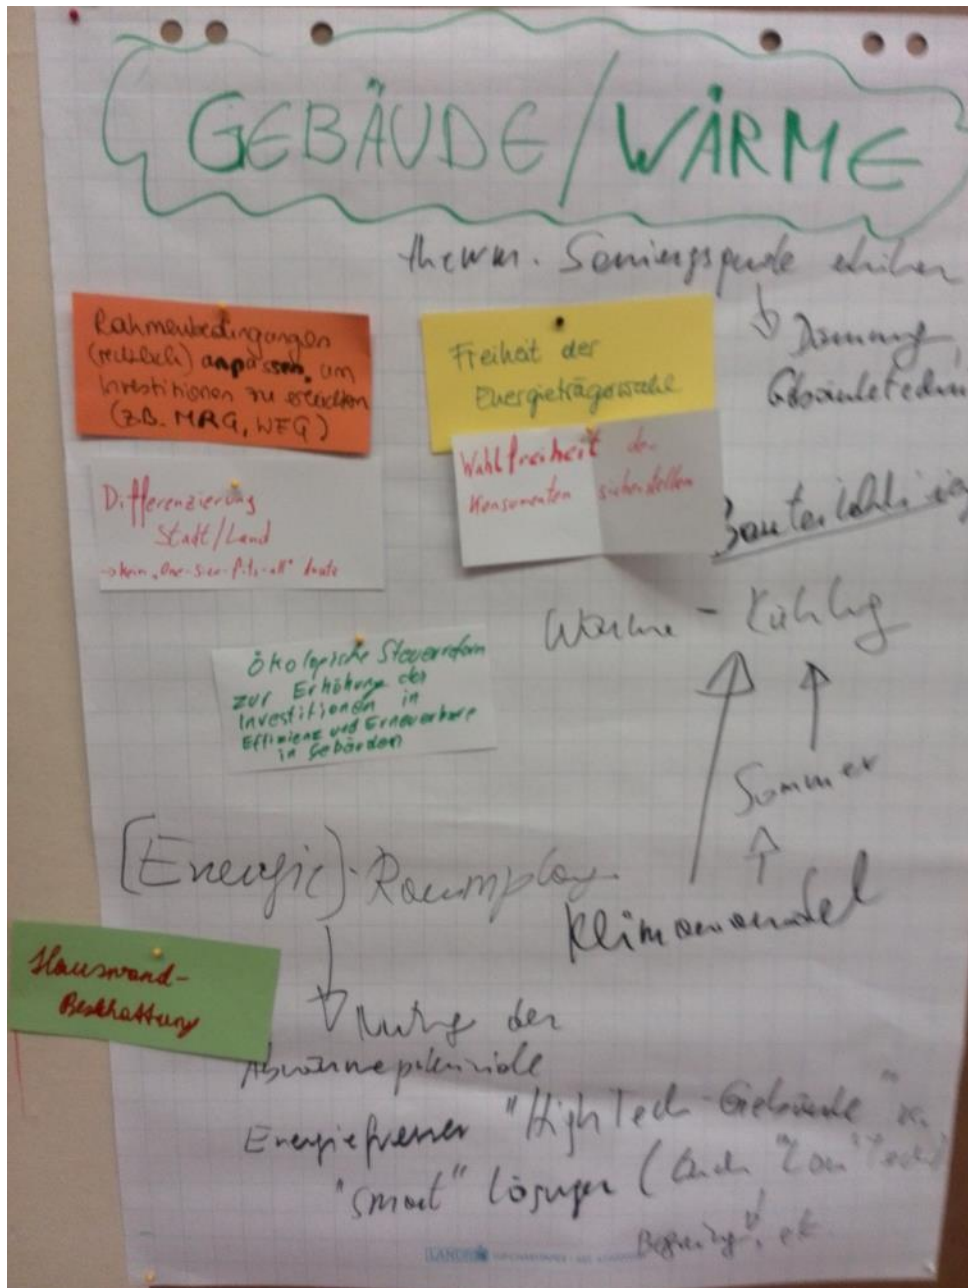 GEBÄUDE/WÄRME
therm. Sanierungsrate erhöhen
Dämmung,
Gebäudetechn
Rahmenbedingungen
(rechtlich) anpassen, um
Investitionen zu erleichtern
(z.B. MRG, WEG)
Freiheit der
Energieträgerwahl
Wahlfreiheit der
Konsumenten sicherstellen
Differenzierung
Stadt/Land
→ kein "One-size-fits-all"
Bauteilaktivierung
Wärme - Kühlung
Ökologische Steuerreform
zur Erhöhung der
Investitionen in
Effizienz und Erneuerbare
in Gebäuden
Sommer
(Energie)-Raumplang
Klimawandel
Hauswand-
Beschattung
Nutzg der
Abwärmepotenziale
Energiefresser "High Tech-Gebäude"
"smart" Lösungen (auch "Low Tech")
LANDR